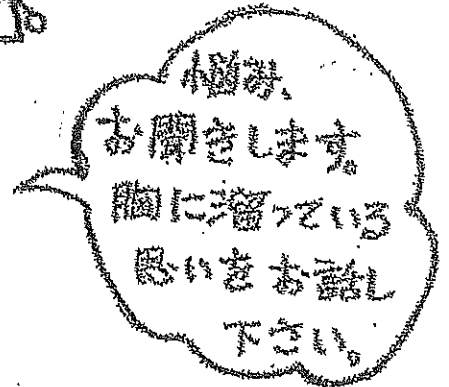 悩み、
お聞きします。
胸に溜っている
思いをお話し
下さい。